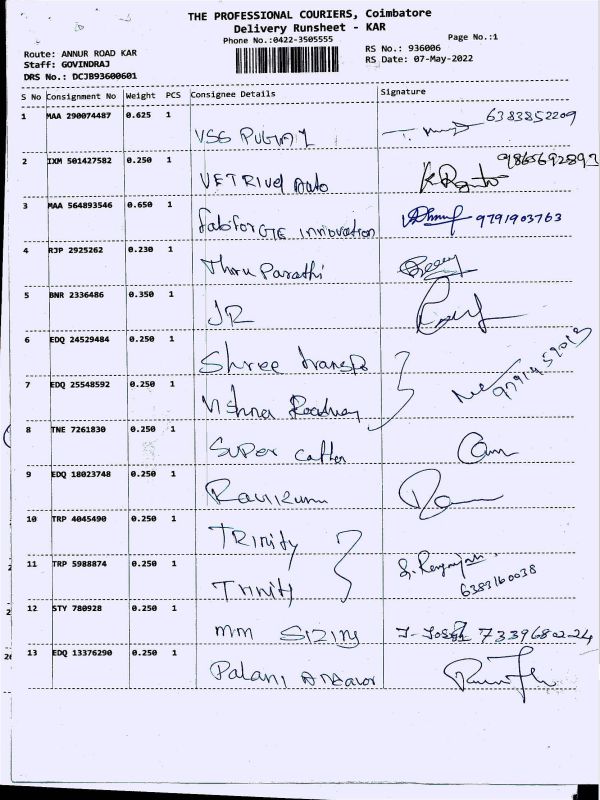 THE PROFESSIONAL COURIERS, Coimbatore
Delivery Runsheet - KAR
Phone No.:0422-3505555
Page No.:1
Route: ANNUR ROAD KAR
Staff: GOVINDRAJ
DRS No.: DCJB93600601
RS No.: 936006
RS Date: 07-May-2022
S No Consignment No Weight PCS Consignee Details Signature
1 MAA 290074487 0.625 1 VSG 6383852209
2 IXM 501427582 0.250 1 VETRIvel Auto
3 MAA 564893546 0.650 1 innovation 9791903763
4 RJP 2925262 0.230 1 Thiru Parathi
5 BNR 2336486 0.350 1 JR
6 EDQ 24529484 0.250 1 Shree
7 EDQ 25548592 0.250 1
8 TNE 7261830 0.250 1 SUPER
9 EDQ 18023748 0.250 1
10 TRP 4045490 0.250 1 TRinity
11 TRP 5988874 0.250 1 Trinity 6383160038
12 STY 780928 0.250 1 mm SIZING 7339680224
13 EDQ 13376290 0.250 1 Palani